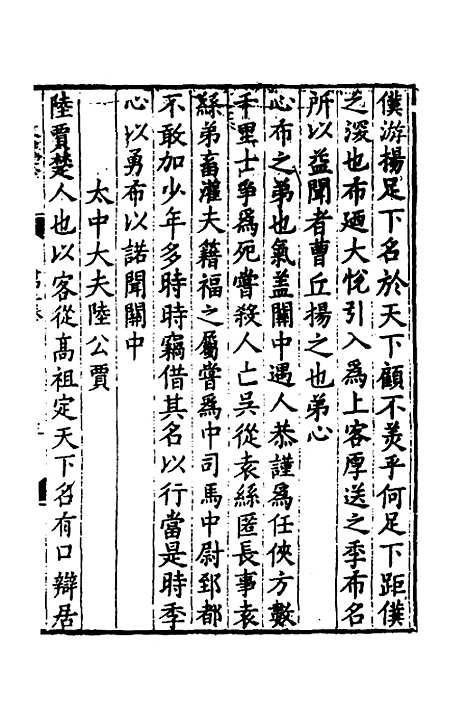 僕游揚足下名於天下顧不羙乎何足下距僕
之深也布廼大悅引入爲上客厚送之季布名
所以益聞者曹丘揚之也弟心
心布之弟也氣盖關中遇人恭謹爲任俠方數
千里士爭爲死嘗殺人亡吳從袁絲匿長事袁
絲弟畜灌夫籍福之屬嘗爲中司馬中尉郅都
不敢加少年多時時竊借其名以行當是時季
心以勇布以諾聞關中
太中大夫陸公賈
陸賈楚人也以客從髙祖定天下名有口辯居